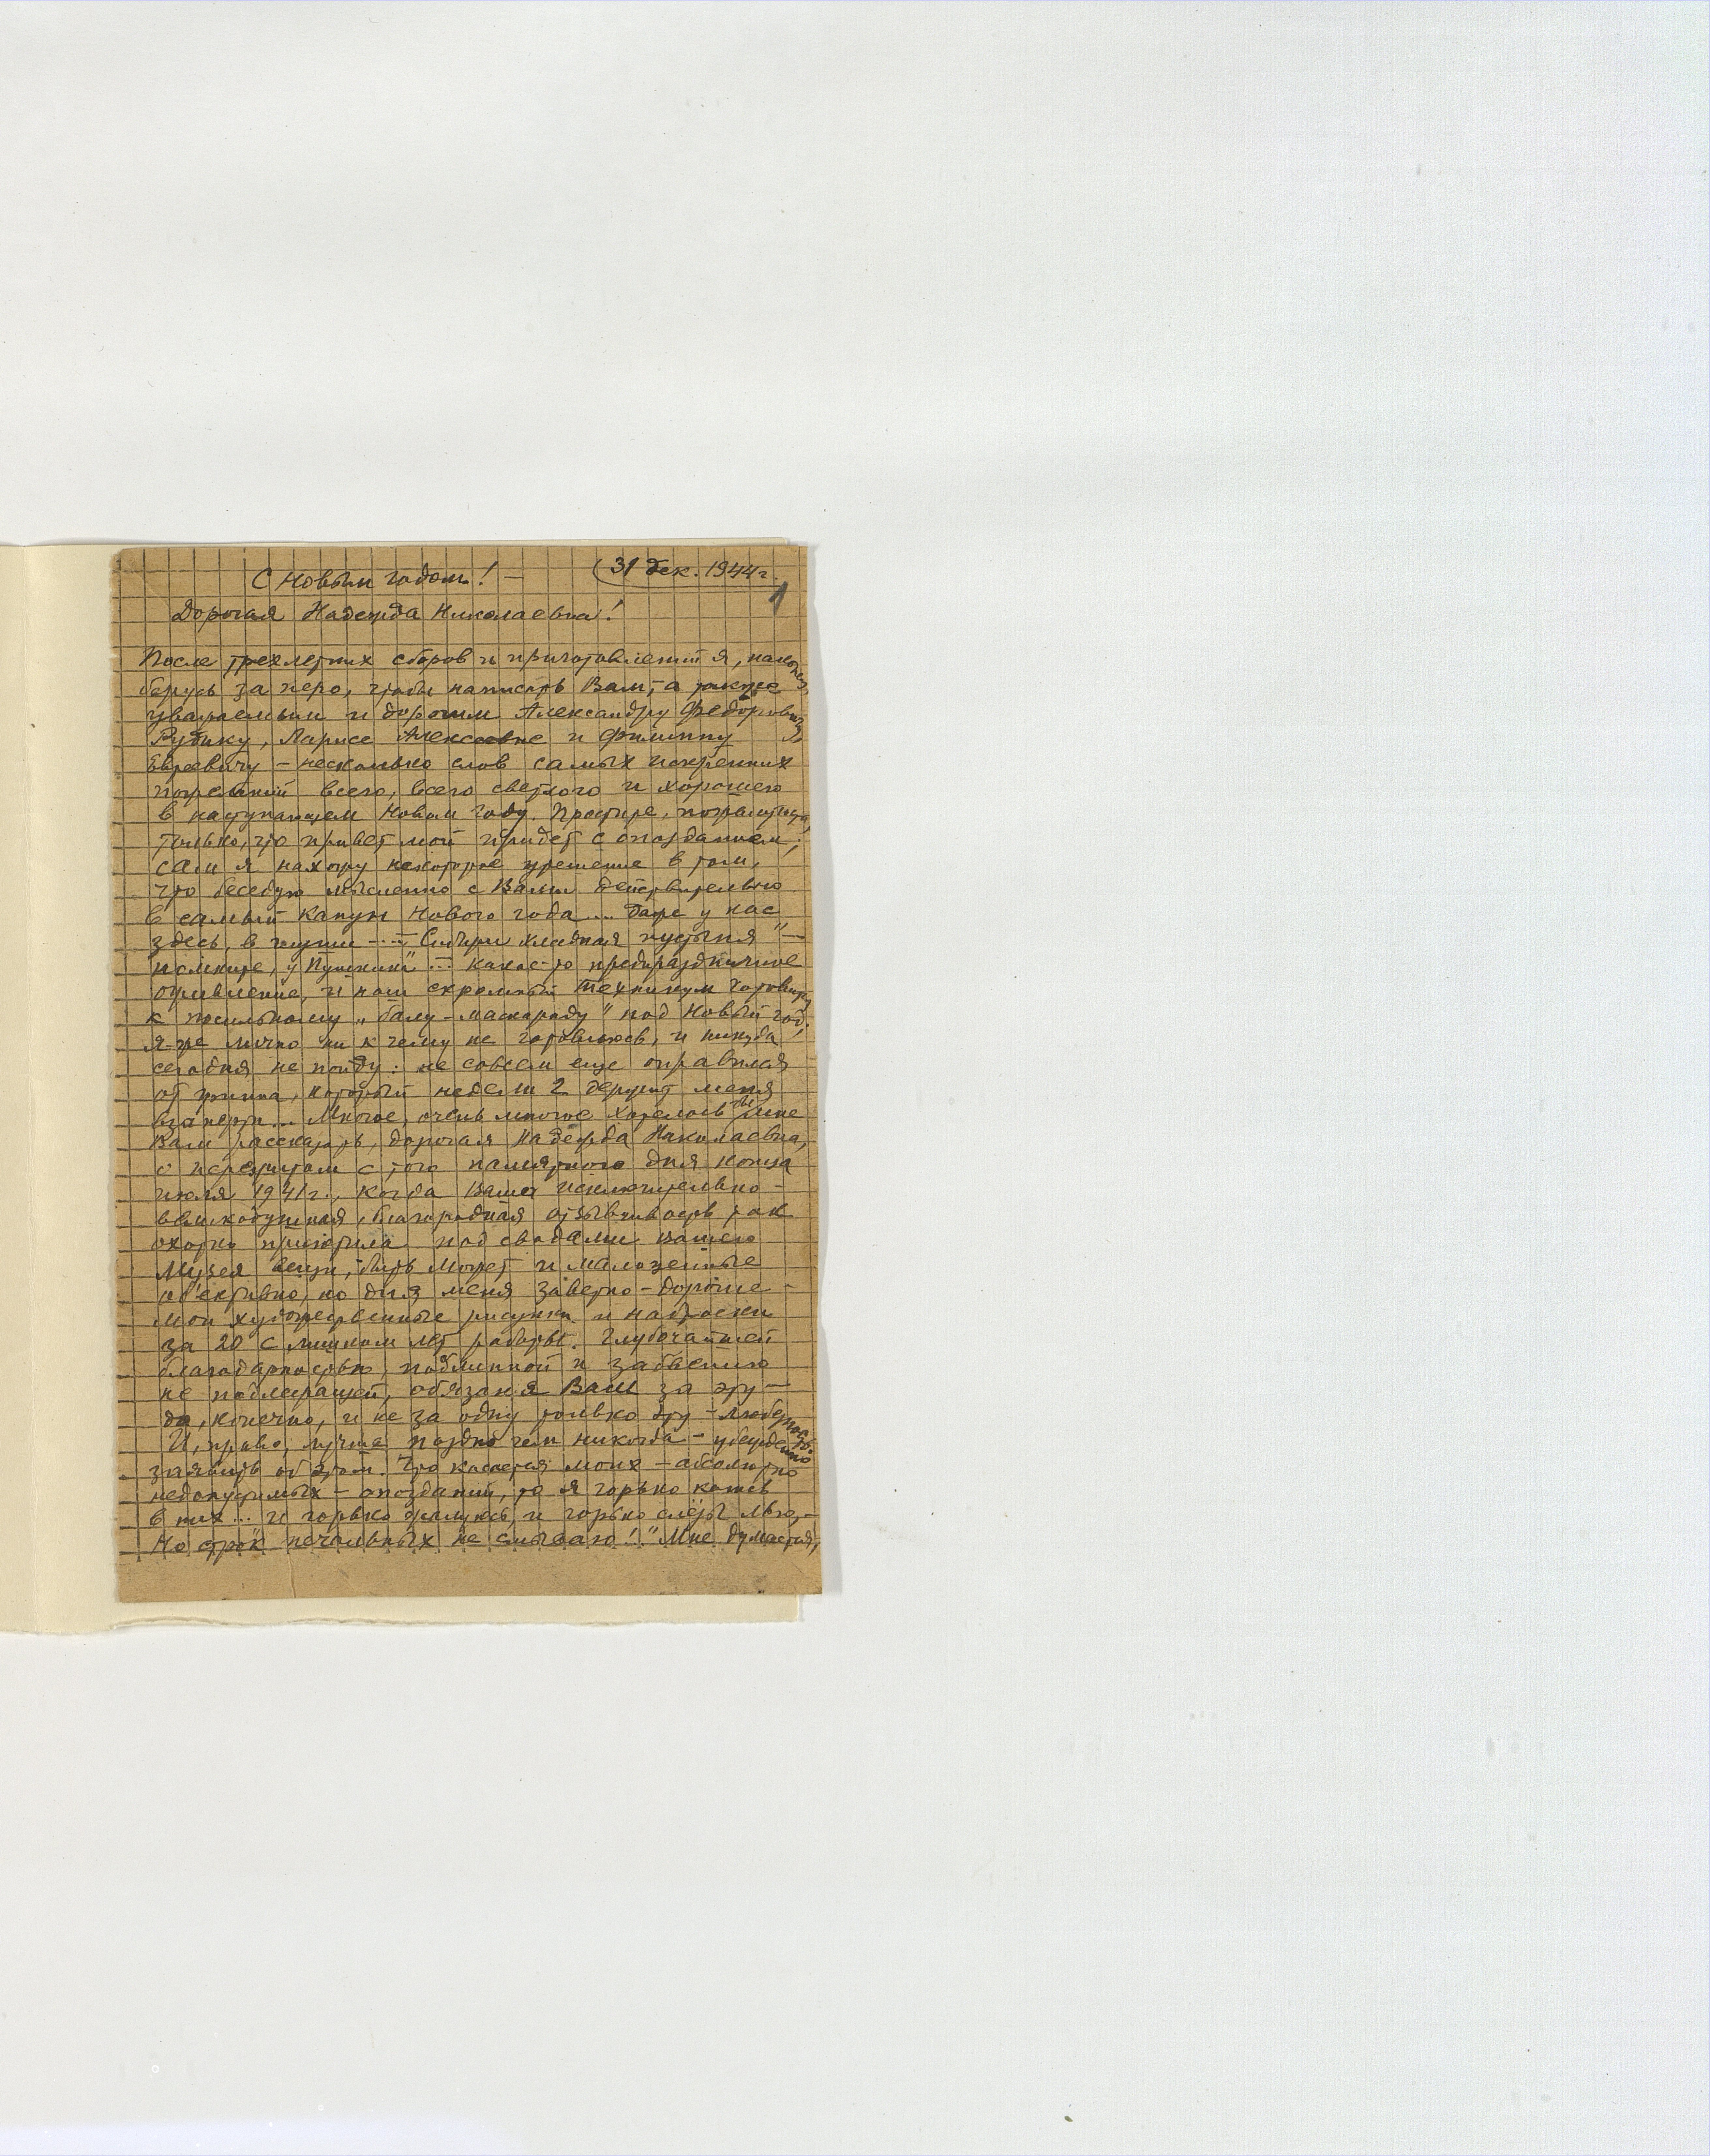 С Новым годом! —
(31 дек. 1944 г.
1
Дорогая Надежда Николаевна!
После трехлетних сборов и приготовлений я, наконец,
берусь за перо, чтобы написать Вам, а также
уважаемым и дорогим Александру Федоровичу
Рубику, Ларисе Алексеевне и Филиппу
— несколько слов самых искренних
пожеланий всего, всего светлого и хорошего
в наступающем Новом году. Простите, пожалуйста,
только, что привет мой придет с опозданием;
сам я нахожу некоторое утешение в том,
что беседую мысленно с Вами действительно
в самый канун Нового года.... Даже у нас
здесь, в глуши — „Сибири хладная пустыня" —
помните, у Пушкина"... какое-то предпраздничное
оживление, и наш скромный техникум готовится
к посильному „балу-маскараду" под Новый год.
Я-же лично ни к чему не готовлюсь, и никуда
сегодня не пойду: не совсем еще оправился
от гриппа, который недели 2 держит меня
взаперти... Многое, очень многое хотелось бы мне
Вам рассказать, дорогая Надежда Николаевна,
о пережитом с того памятного дня конца
июля 1941 г., когда Ваша исключительно-
великодушная, благородная отзывчивость так
охотно приютила под сводами Вашего
Музея вещи, быть может и малоценные
об'ективно, но для меня заветно-дорогие —
мои художественные рисунки и наброски
за 20 с лишком лет работы. Глубочайшей
благодарностью, подлинной и забвению
не подлежащей, обязан я Вам за эту —
да, конечно, и не за одну только эту — любезность.
И, право, лучше поздно чем никогда — убежденно
заявить об этом. Что касается моих — абсолютно
недопустимых — опозданий, то я горько каюсь
в них... и горько жалуюсь, и горько слезы лью, —
Но строк печальных не смываю!" Мне думается,